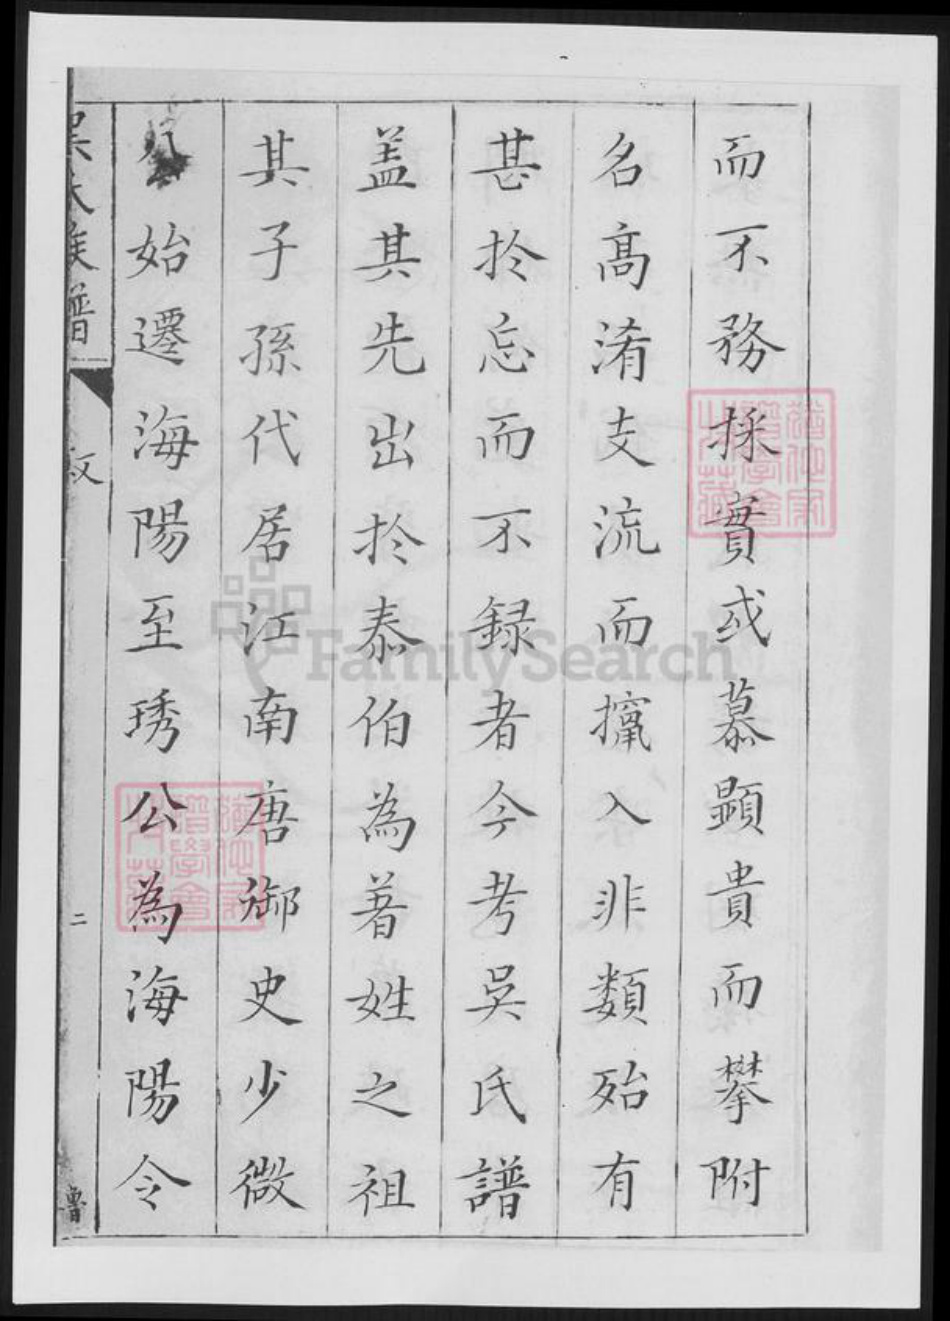 而不務採實或慕顯貴而攀附
名高淆支流而攛入非類殆有
甚扵忘而不録者今考吳氏譜
盖其先出扵泰伯為著姓之祖
其子孫代居江南唐御史少微
公始遷海陽至琇公為海陽令
吳氏族譜
二
魯
FamilySearch